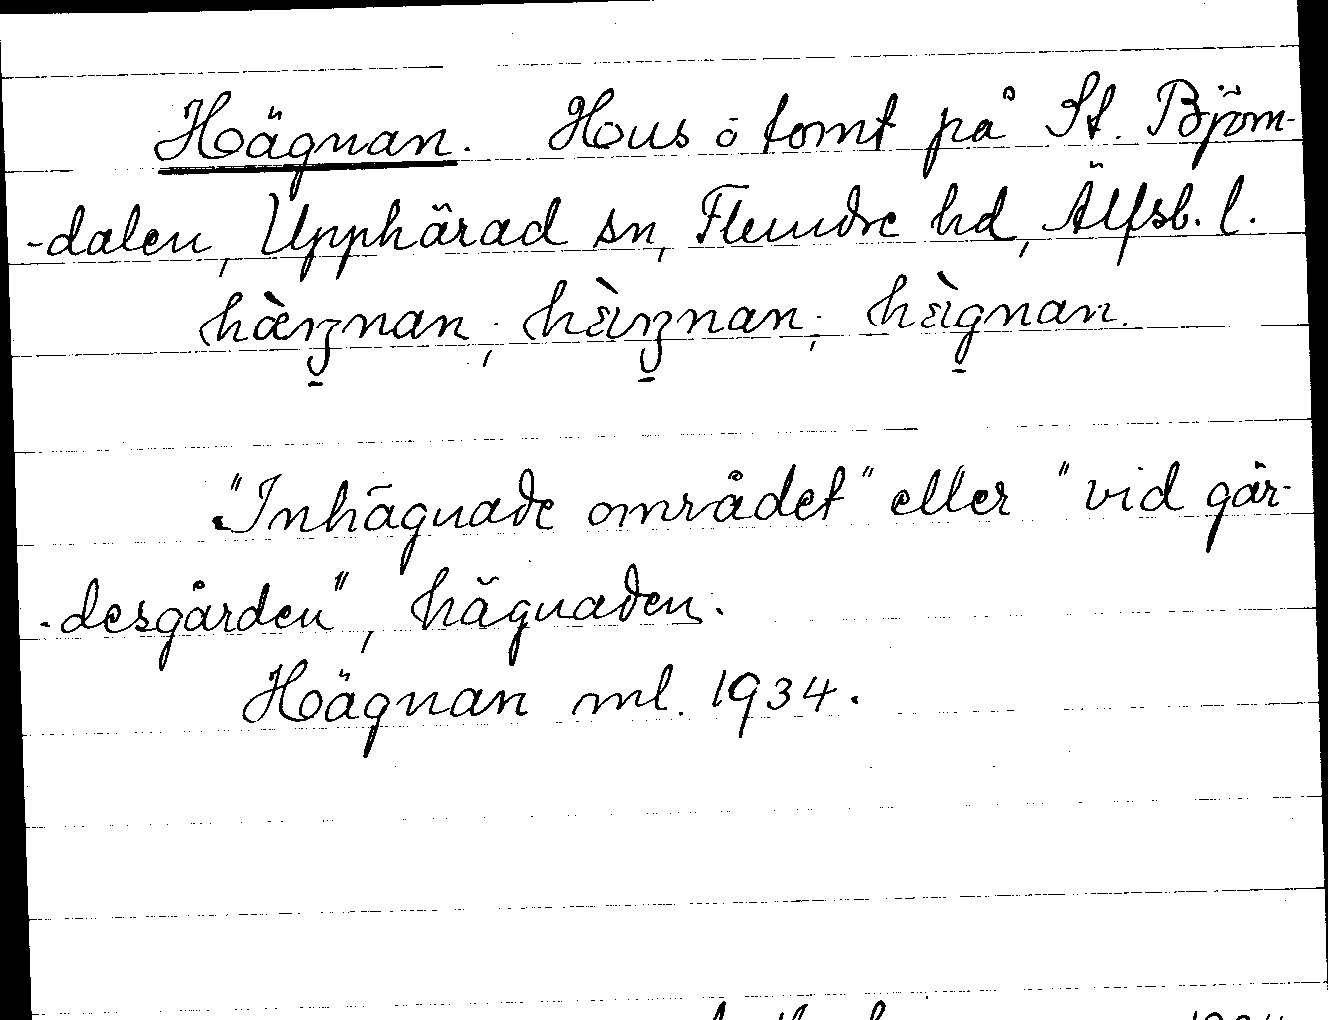 Hägnan. Hus o tomt på St. Björn-
-dalen, Upphärad sn, Flundre hd, Älfsb. l.
hæ̀ŋnan; hɛ̀ŋnan; hɛ̀gnan.
"Inhägnade området" eller "vid gär-
-desgården", hägnaden.
Hägnan ml. 1934.